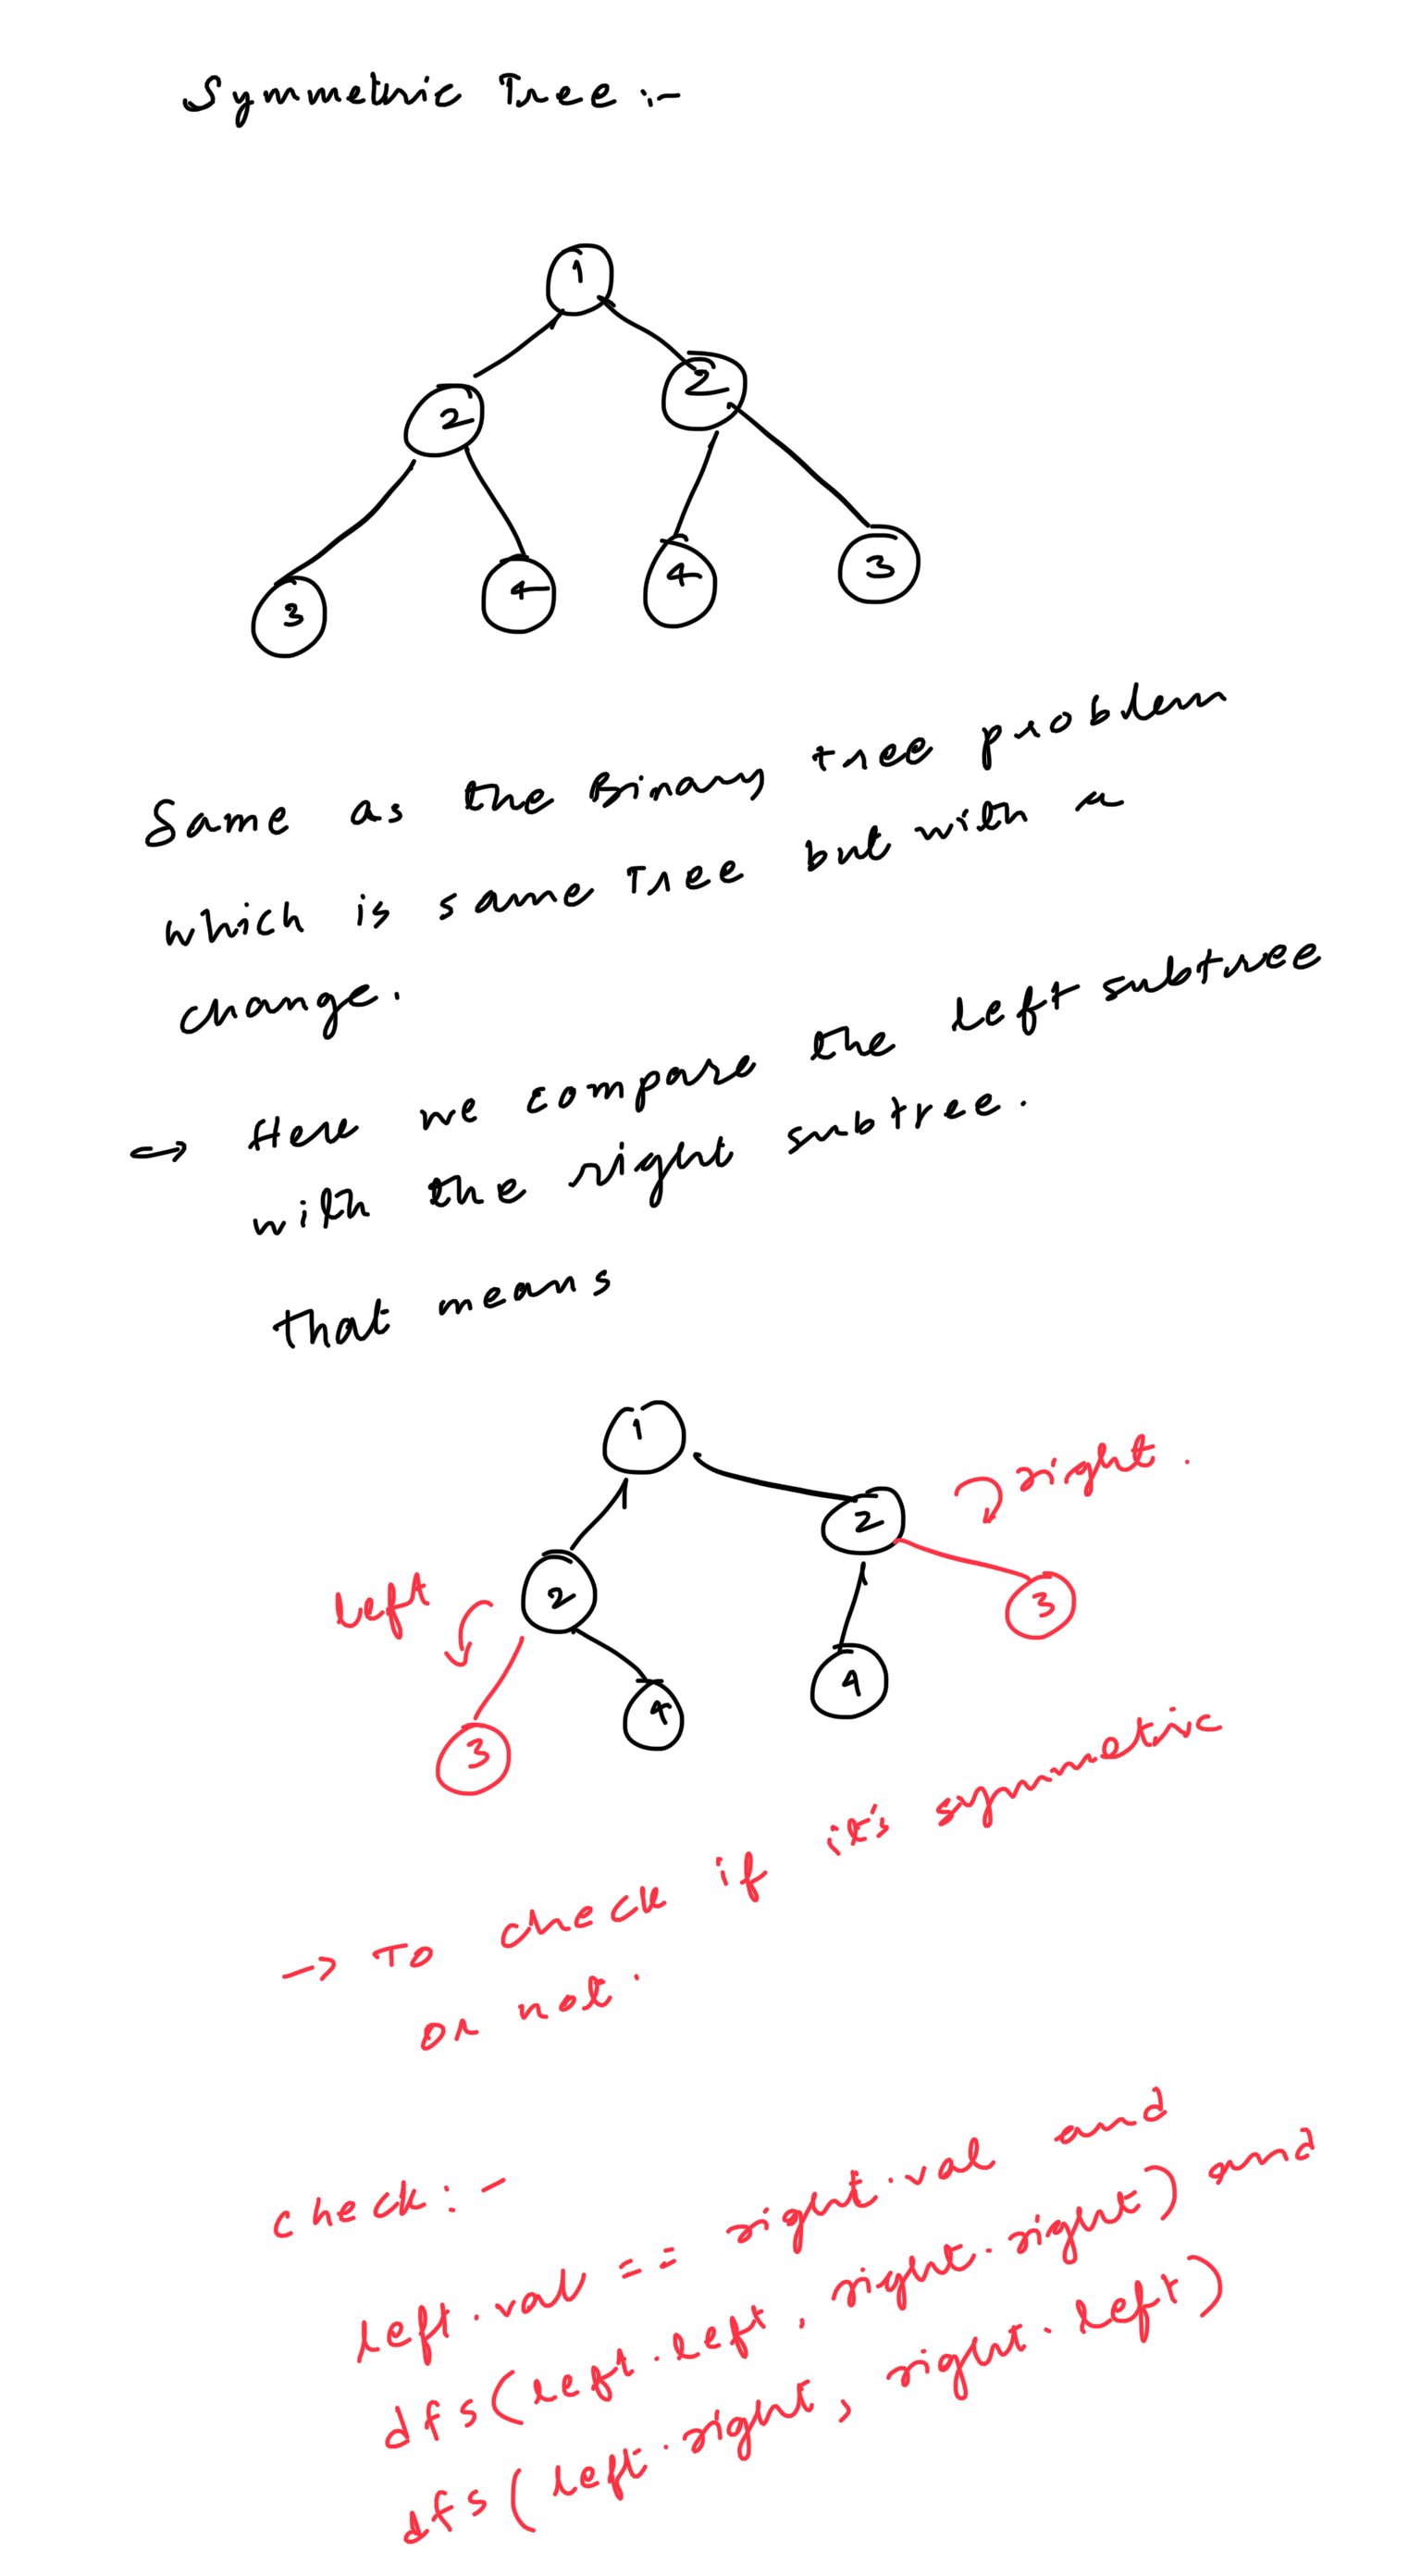 Symmetric Tree :-
1
2
2
3
4
4
3
Same as the Binary tree problem
which is same Tree but with a
change.
→ Here we compare the left subtree
with the right subtree.
that means
1
right.
2
left
2
3
4
4
3
→ To check if it's symmetric
or not.
check :-
left.val == right.val and
dfs(left.left, right.right) and
dfs(left.right, right.left)